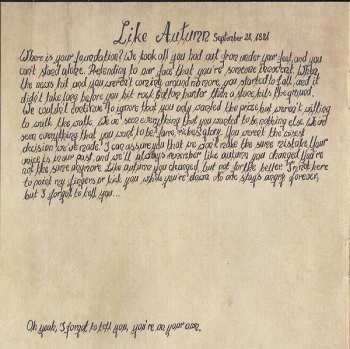 Like Autumn September 28, 1881
Where is your foundation? We took all you had out from under your feet, and you
can't stand alone. Pretending to our face that you're someone important. When
the news hit and you weren't coming around no more, you started to fall, and it
didn't take long before you hit rock bottom harder than a stone hits the ground.
We couldn't continue to ignore that you only wanted the prize but weren't willing
to walk the walk. We've seen everything that you wanted to be nothing else. We've
seen everything that you want to be: fame, riches, glory. You weren't the wisest
decision we've made. I can assure you that we won't make the same mistake. Your
voice is in our past, and we'll always remember like autumn you changed. You're
not the same anymore. Like autumn you changed, but not for the better. I'm not here
to point my fingers or kick you while you're down. No one stays angry forever,
but I forgot to tell you...
Oh yeah, I forgot to tell you, you're on your own.